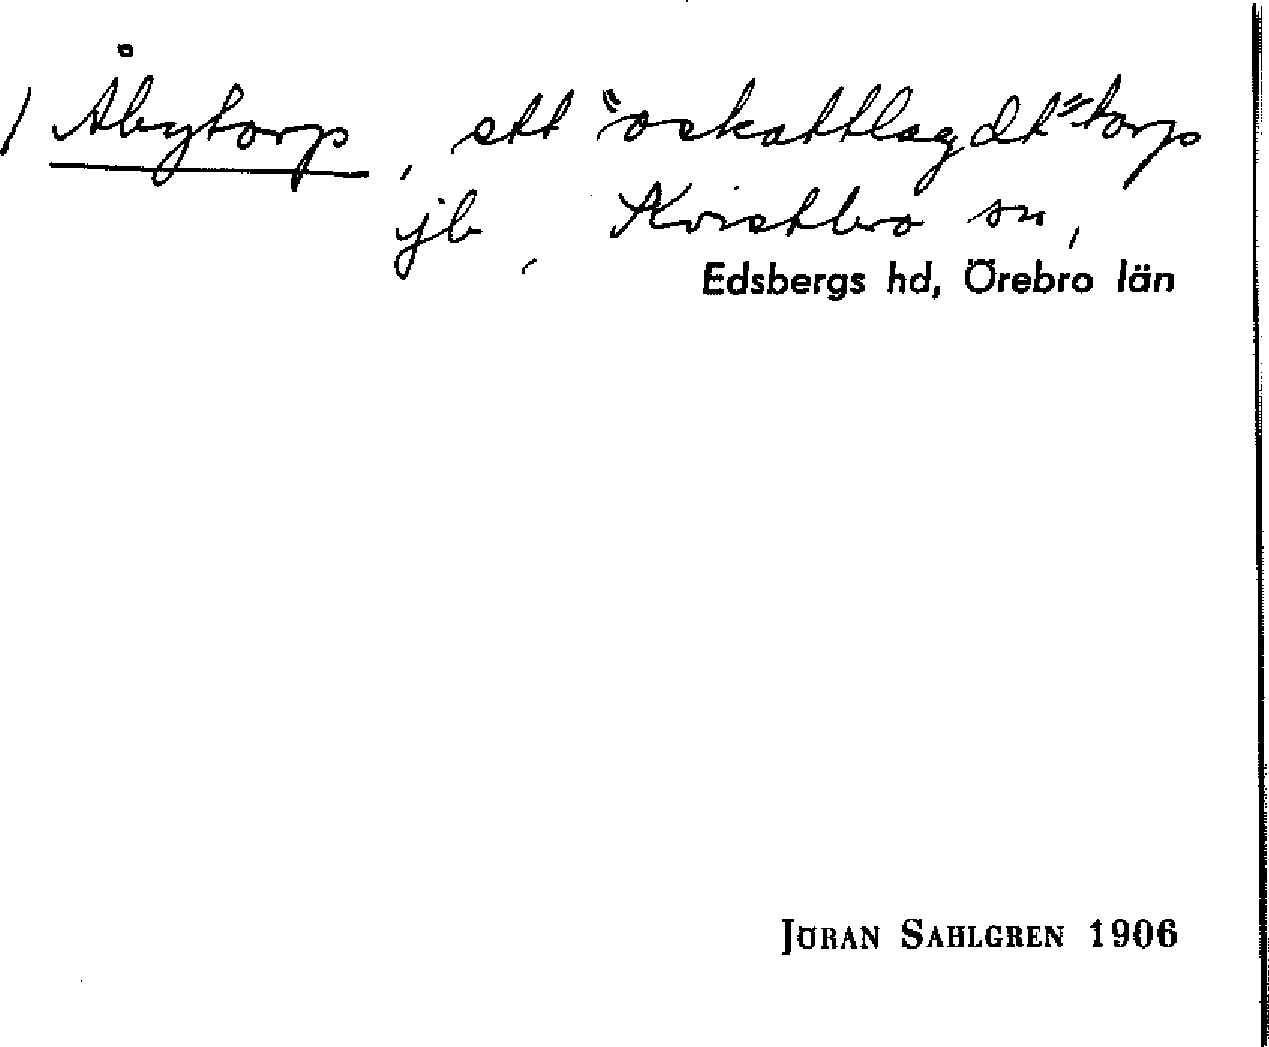 / Åbytorp, ett "oskattlagdt" torp
jb, Kvistbro sn,
Edsbergs hd, Örebro län
JÖRAN SAHLGREN 1906